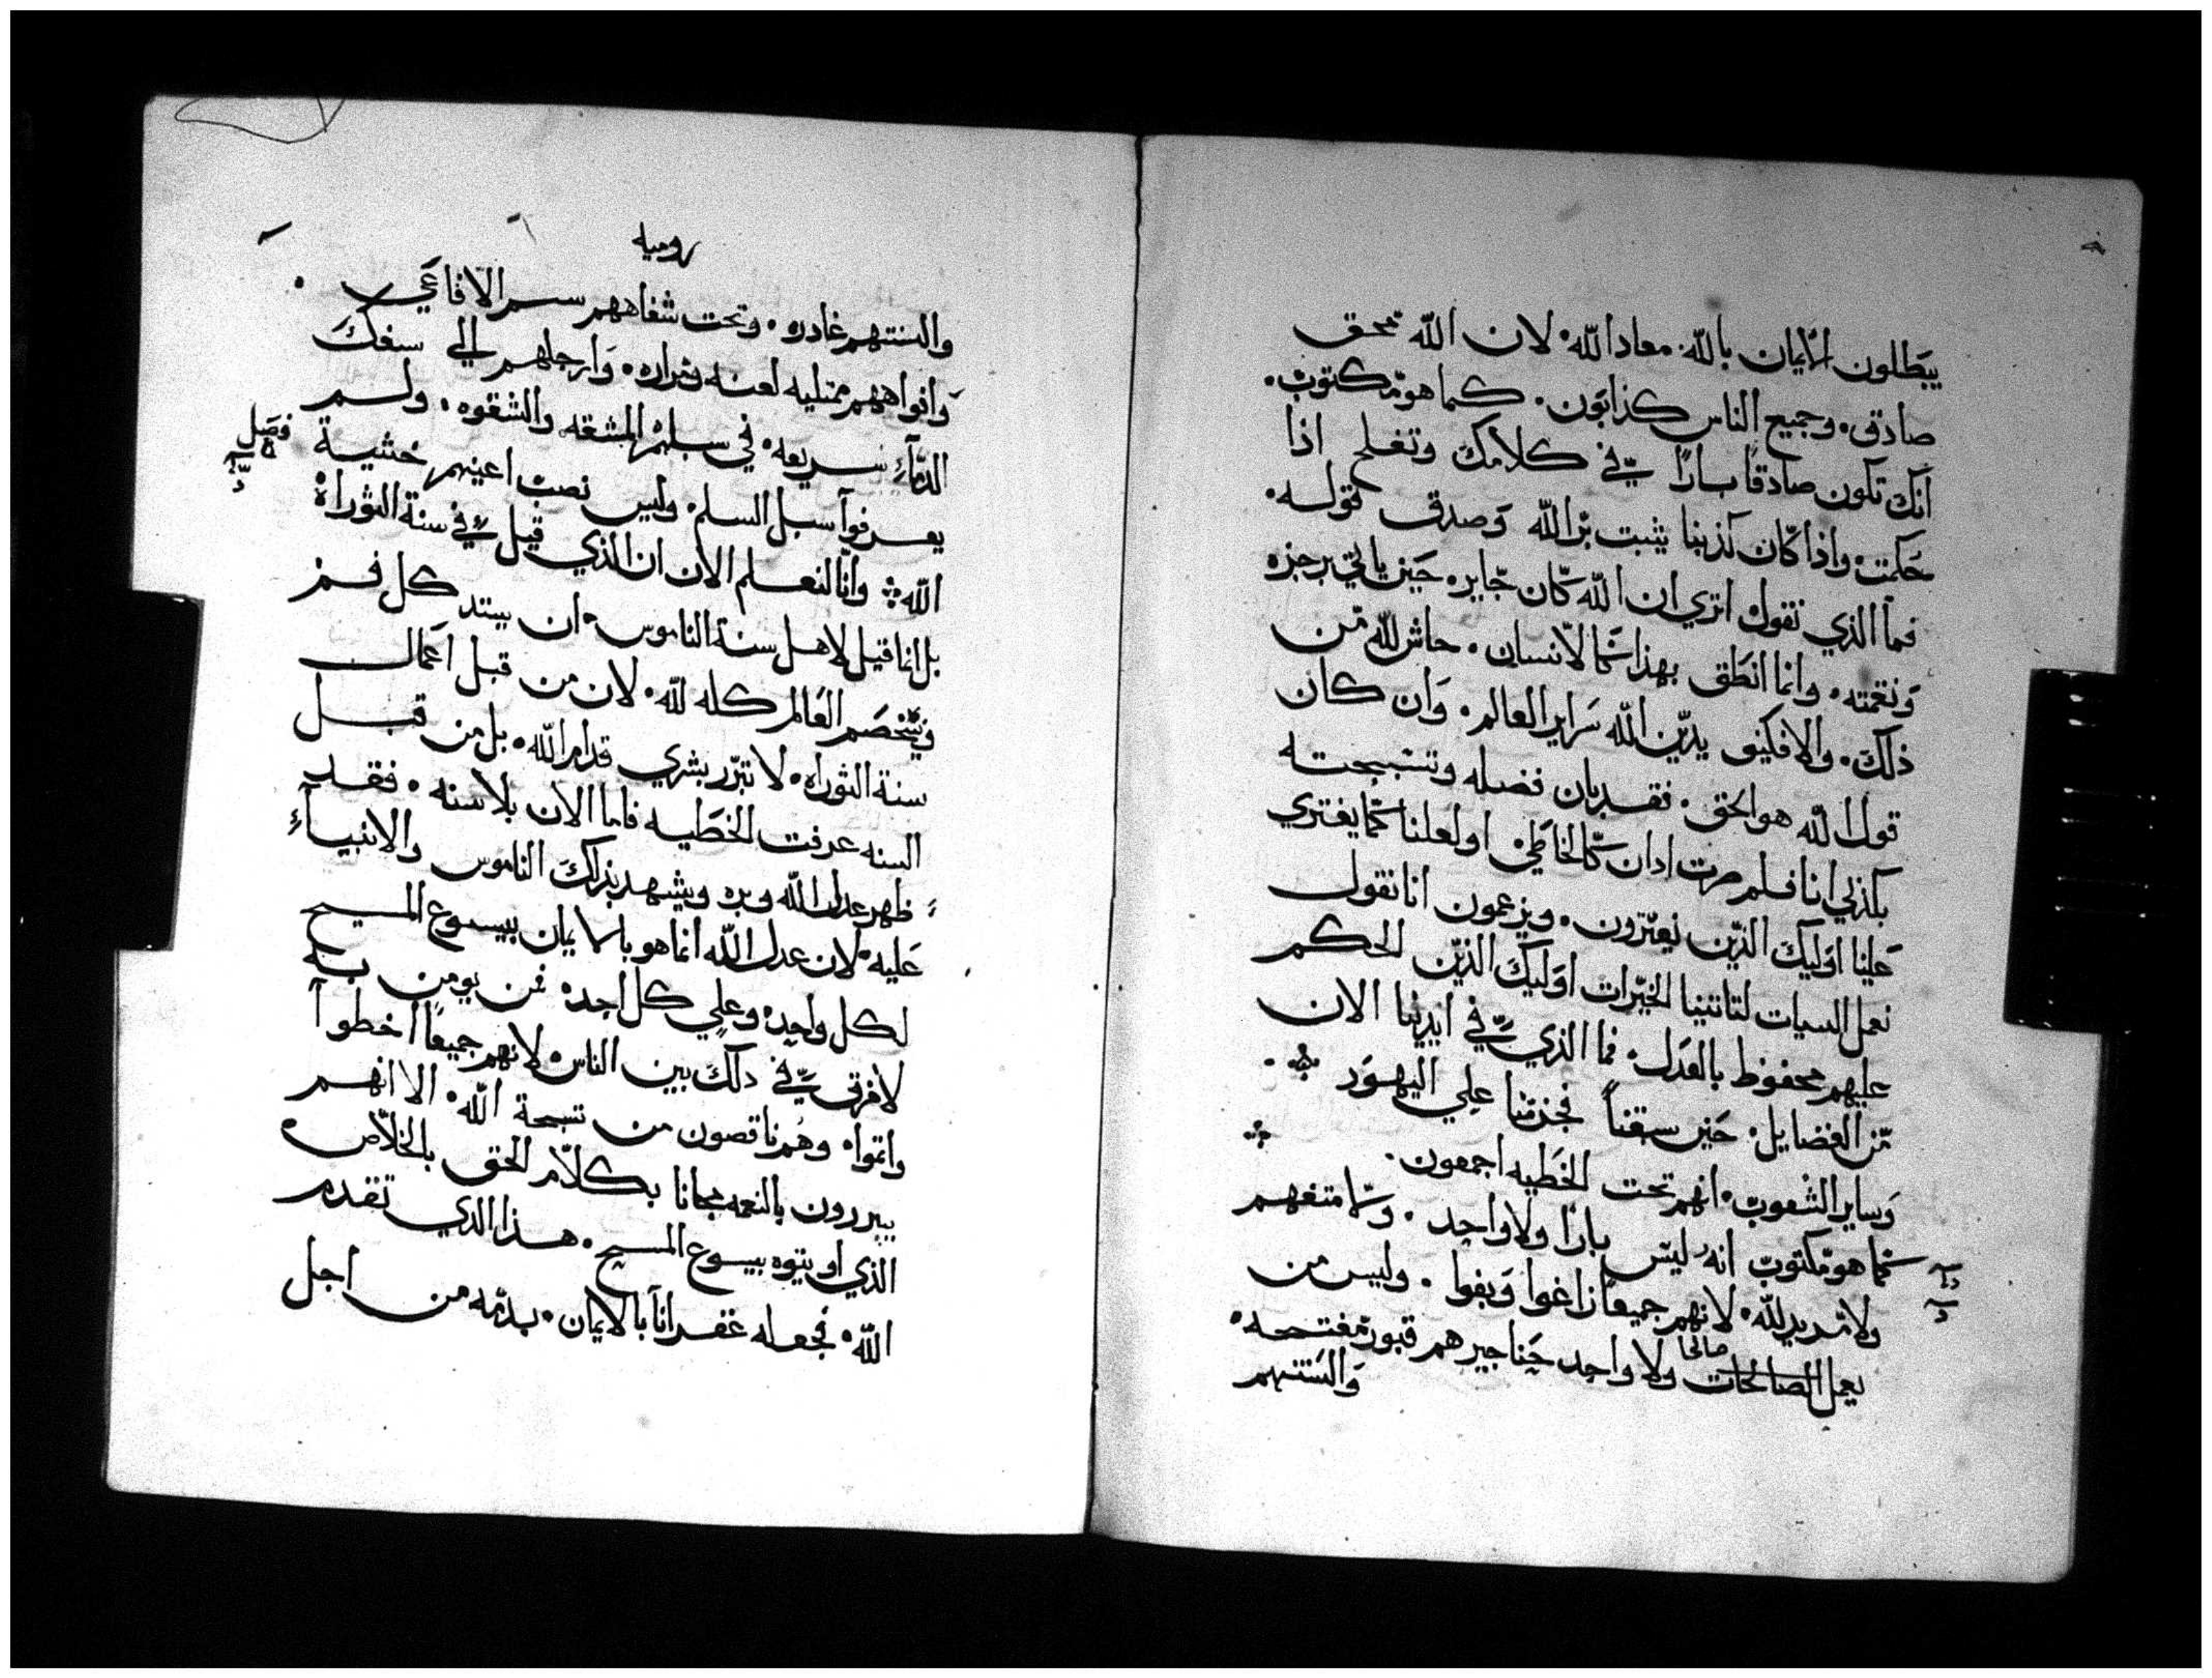 يبطلون الايمان بالله. معاد الله. لان الله محق
صادق. وجميع الناس كذابون. كما هو مكتوب.
انك تكون صادقا بارا في كلامك وتغلب اذا
حكمت. واذا كان كذبنا يثبت بر الله وصدق قوله.
فما الذي نقول اترى ان الله كان جاير. حين ياتي برجزه
ونقمته. وانما انطق بهذا كما لانسان. حاش لله من
ذلك. والا فكيف يدين الله سراير العالم. وان كان
قول الله هو الحق. فقد بان فضله وتسبحته
بكذبي انا فلم صرت ادان كالخاطي او لعلنا كما يفتري
علينا اوليك الذين يفترون. ويزعمون انا نقول
نعمل السيات لتاتينا الخيرات اوليك الذين الحكم
عليهم محفوظ بالعدل. فما الذي في ايدينا الان
من الفضايل. حين سبقنا فجزمنا علي اليهود
وساير الشعوب. انهم تحت الخطيه اجمعون.
كما هو مكتوب انه ليس بارا ولا واحد. ولا متفهم
ولا مريد لله. لانهم جميعا زاغوا وبغوا. وليس من
صالحا
يعمل الصالحات ولا واحد حناجيرهم قبور مفتحه.
والسنتهم
روميه
والسنتهم غادره. وتحت شفاههم سم الافاعي.
وافواههم ممتليه لعنه ومراره. وارجلهم الي سفك
الدمآء سريعه. في سبلهم المشقه والشقوه. ولم
فصل
يعرفوا سبل السلم. وليس نصب اعينهم خشية
الله. وانا لنعلم الان ان الذي قيل في سنة التوراة
بل انما قيل لاهل سنة الناموس. ان يستد كل فم
ويخصم العالم كله لله. لان من قبل اعمال
سنة التوراه. لا تبرر بشري قدام الله. بل من قبل
السنه عرفت الخطيه فاما الان بلا سنه. فقد
ظهر عدل الله وبره ويشهد بذلك الناموس والانبيآء
عليه. لان عدل الله انما هو بالايمان بيسوع المسيح
لكل واحد. وعلي كل احد. فمن يومن به
لا فرق في دلك بين الناس. لانهم جميعا اخطوا
واثموا. وهم ناقصون من تسبحة الله. الا انهم
يبررون بالنعمه مجانا بكلام الحق بالخلاص.
الذي اوتيتوه بيسوع المسيح. هذا الدي تقدم
الله. فجعله غفرانا بالايمان. بدمه من اجل